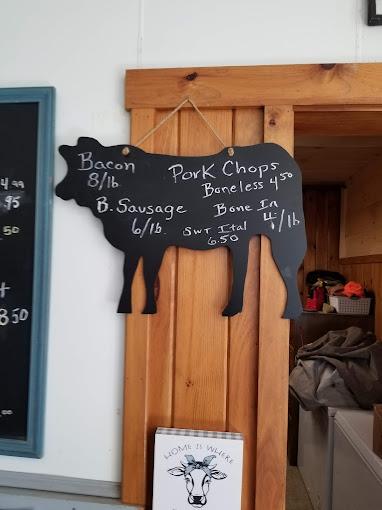 Bacon
8/lb.
B. Sausage
6/lb.
Pork Chops
Boneless 4.50
Bone In
4/lb
Swt Ital
6.50
4.99
.95
.50
8.50
.00
HOME IS WHERE